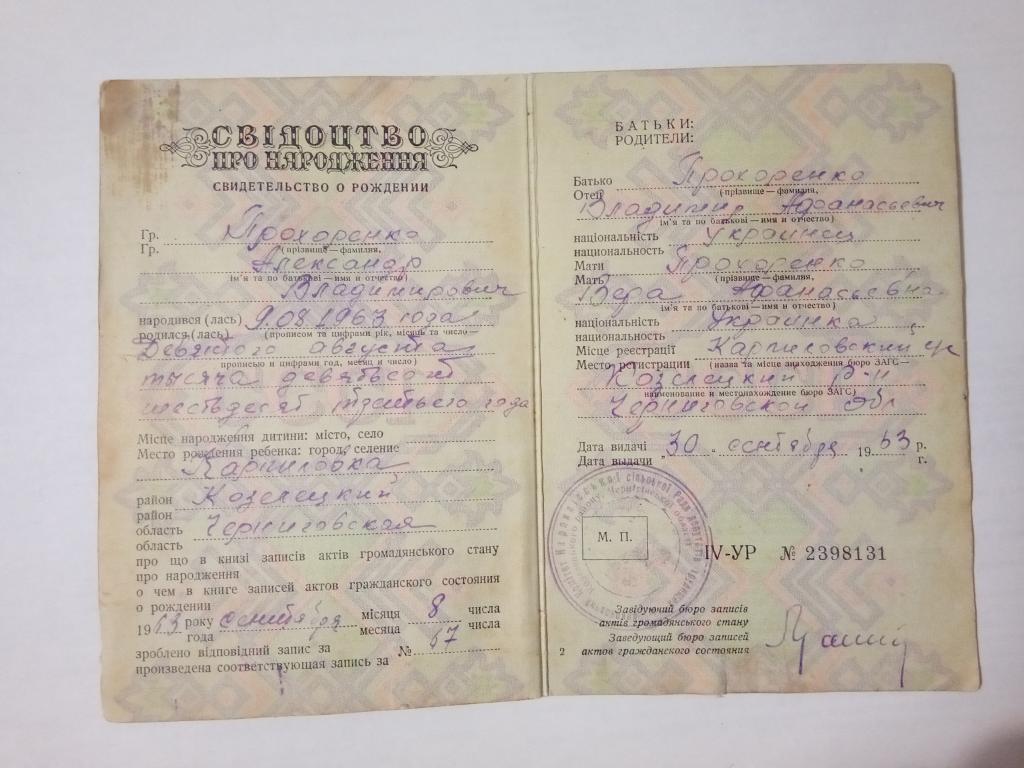 СВІДОЦТВО
ПРО НАРОДЖЕННЯ
СВИДЕТЕЛЬСТВО О РОЖДЕНИИ
Гр. Прохоренко
Гр. (прізвище — фамилия,
Александр
ім'я та по батькові — имя и отчество)
Владимирович
народився (лась) 9.08.1963 года
родился (лась) (прописом та цифрами рік, місяць та число —
Девятого августа
прописью и цифрами год, месяц и число)
тысяча девятьсот
шестьдесят третьего года
Місце народження дитини: місто, село
Место рождения ребенка: город, селение
Карпиловка
район Козелецкий
район
область Черниговская
область
про що в книзі записів актів громадянського стану
про народження
о чем в книге записей актов гражданского состояния
о рождении
1963 року сентября місяця 8 числа
года месяца числа
зроблено відповідний запис за № 67
произведена соответствующая запись за
БАТЬКИ:
РОДИТЕЛИ:
Батько Прохоренко
Отец (прізвище — фамилия,
Владимир Афанасьевич
ім'я та по батькові — имя и отчество)
національність украинец
национальность
Мати Прохоренко
Мать (прізвище — фамилия,
Вера Афанасьевна
ім'я та по батькові — имя и отчество)
національність украинка
национальность
Місце реєстрації Карпиловский
Место регистрации (назва та місце знаходження бюро ЗАГС —
Козелецкий р-н
наименование и местонахождение бюро ЗАГС)
Черниговской обл
Дата видачі "30" сентября 1963 р.
Дата выдачи г.
М. П.
IV-УР № 2398131
Завідуючий бюро записів
актів громадянського стану
Заведующий бюро записей
2 актов гражданского состояния